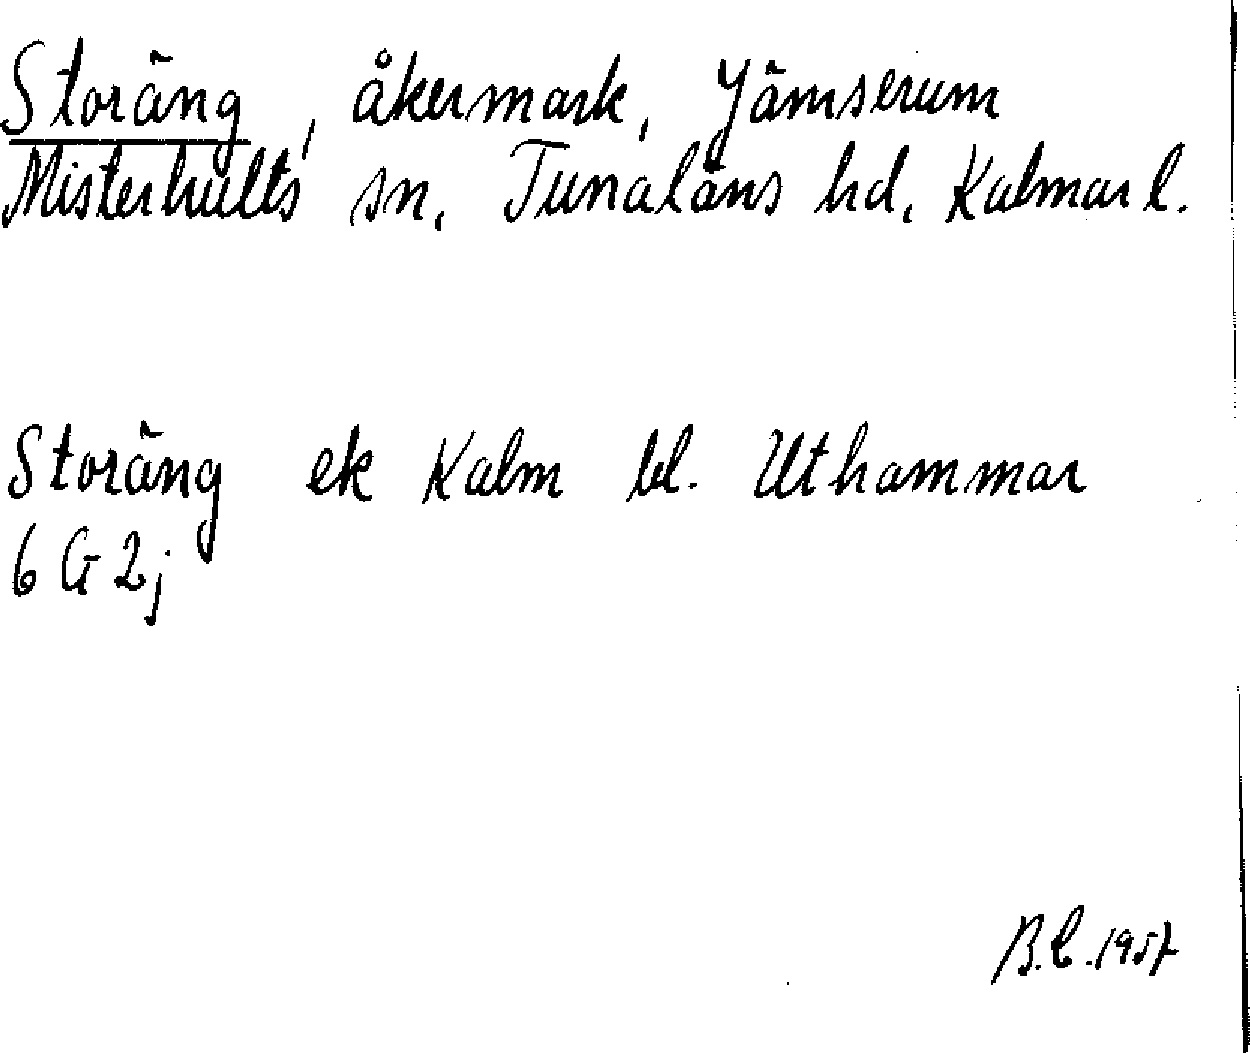 Storäng, åkermark, Jämserum
Misterhults sn, Tunaläns hd, Kalmar l.
Storäng ek Kalm bl. Uthammar
6 G 2j
B.C. 1957